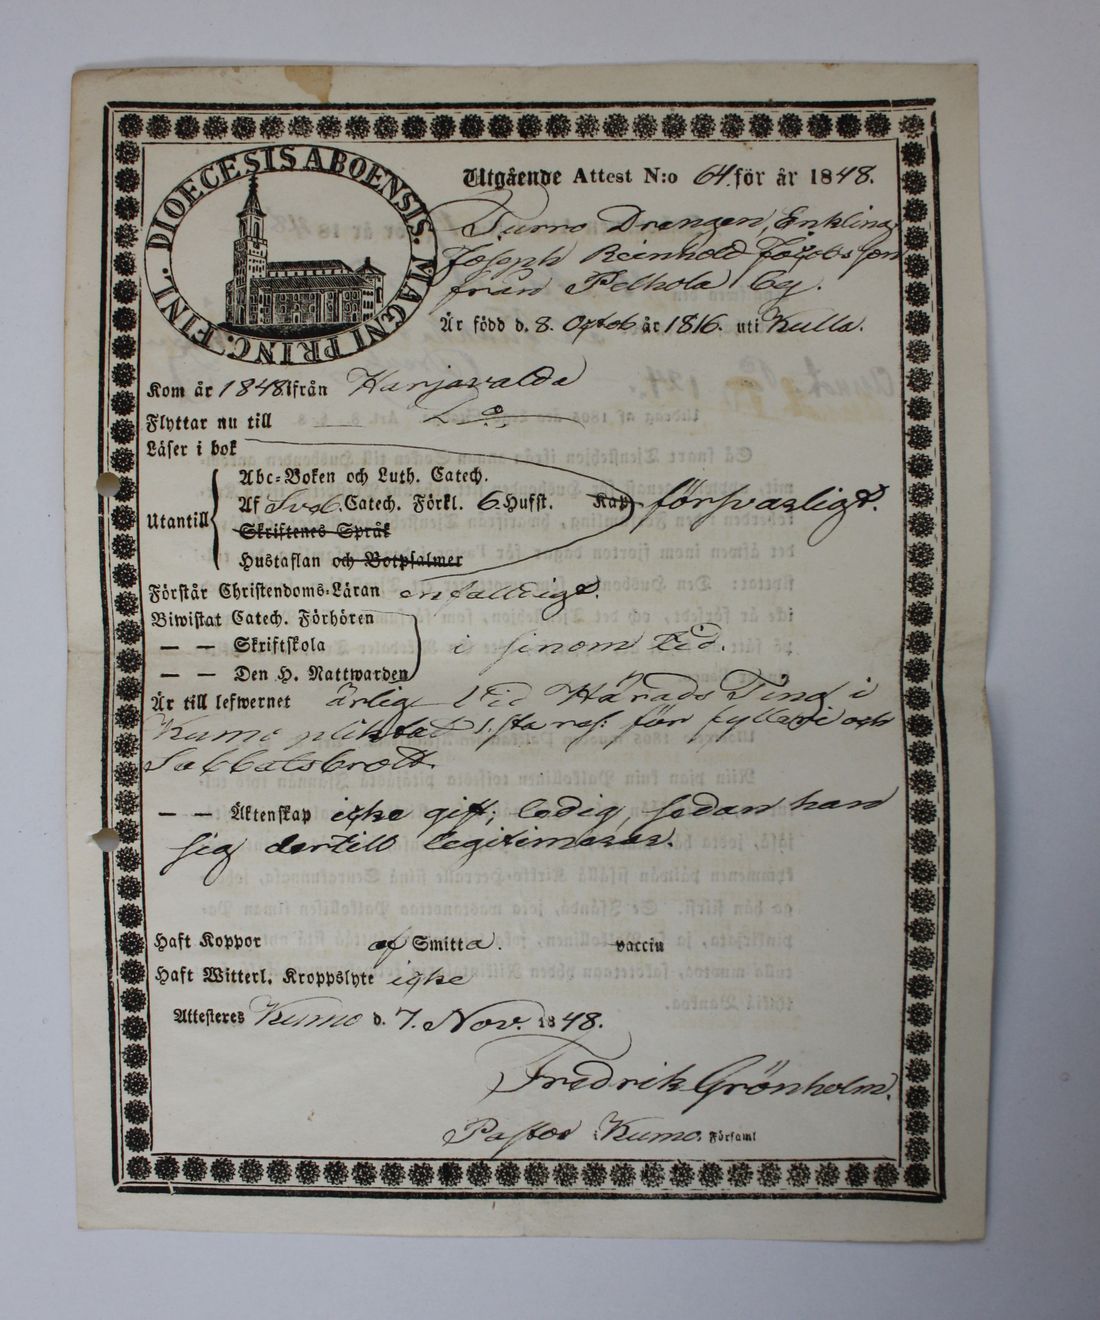 FINL. DIOECESIS ABOENSIS. MAGNI PRINC.
Utgående Attest N:o 64. för år 1848.
Drengen, Enkling
Joseph Reinhold Jacobsson
från Pelhola by.
Är född d. 8. Octob år 1816. uti Kulla.
Kom år 1848 ifrån Harjavalda
Flyttar nu till D:o
Läser i bok
Abc-Boken och Luth. Catech.
Utantill
Af Sveb. Catech. Förkl. 6 Hufst. Kap försvarligt.
Skriftenes Språk
Hustaflan och Botpsalmer
Förstår Christendoms-Läran enfalldigt.
Biwistat Catech. Förhören
— — Skriftskola i sinom tid.
— — Den H. Nattwarden
Är till lefwernet ärlig. Vid Härads Ting i
Kumo pliktat 1:sta res: för fylleri och
Sabbatsbrott.
— — Äktenskap icke gift; ledig, sedan han
sig dertill legitimerar.
Haft Koppor af Smitta. vaccin
Haft Witterl. Kroppslyte icke
Attesteres Kumo d. 7. Nov. 1848.
Fredrik Grönholm.
Pastor i Kumo. Församl